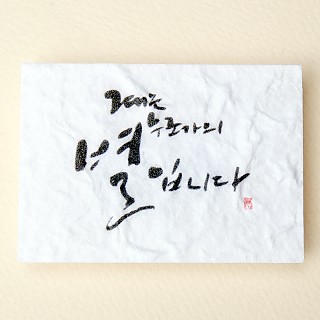 그대는
누군가의
별
입니다